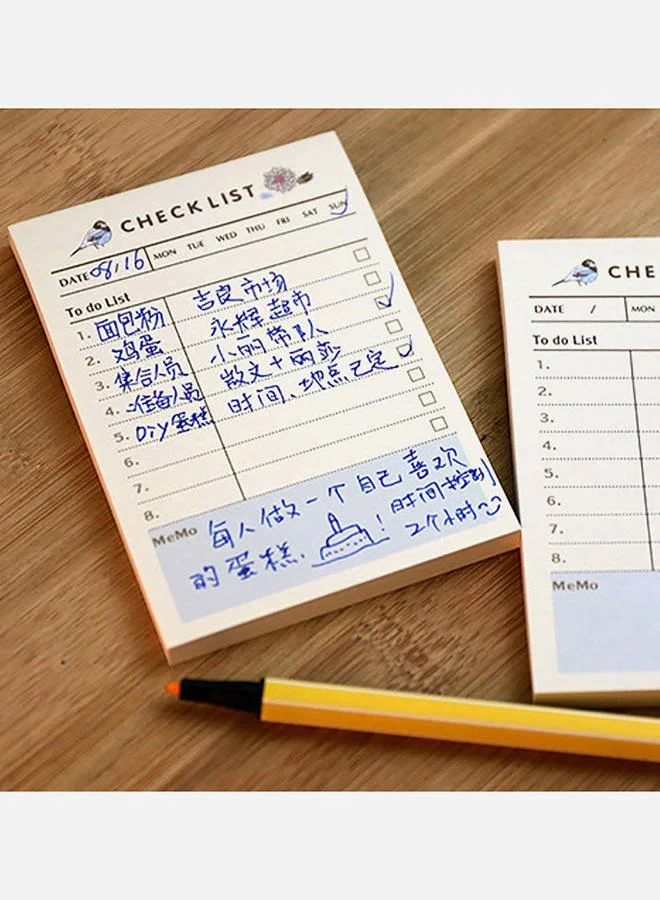 CHECK LIST
DATE 08/16 MON TUE WED THU FRI SAT SUN
To do List
1. 面包粉 吉良市场
2. 鸡蛋 永辉超市
3. 集合人员 小丽带队
4. 准备人员
5. DIY蛋糕 时间、地点已定
6.
7.
8.
MeMo
每人做一个自己喜欢
的蛋糕. ! 时间控制
2个小时
CHE
DATE / MON
To do List
1.
2.
3.
4.
5.
6.
7.
8.
MeMo